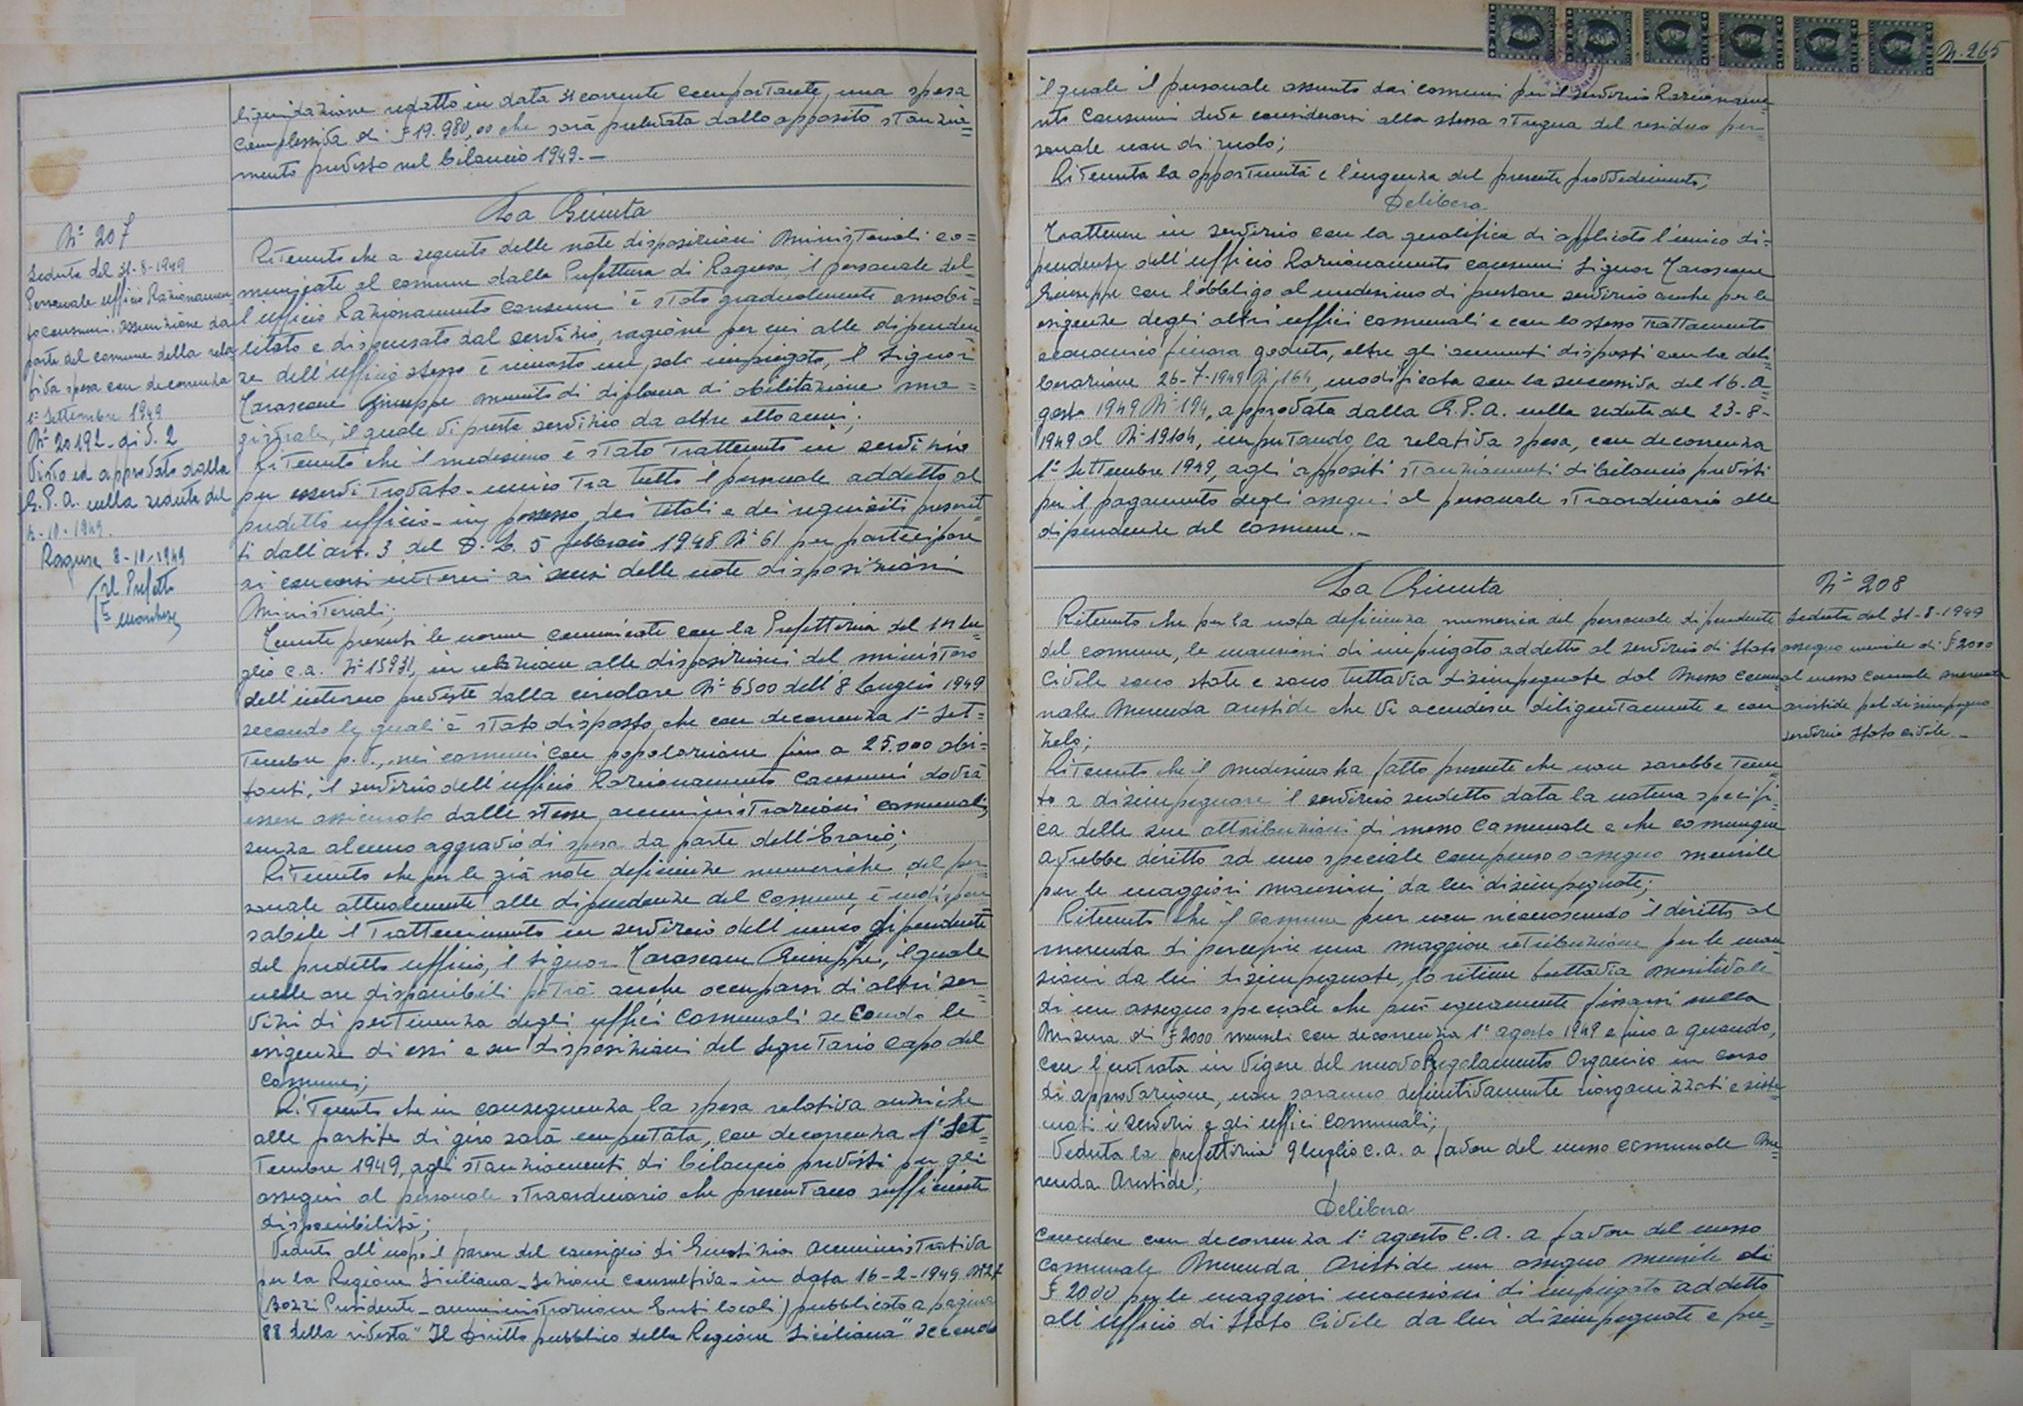 liquidazione redatto in data 31 corrente comportante, una spesa
complessiva di £ 19.980,00 che sarà prelevata dallo apposito stanzia=
mento previsto nel bilancio 1949.—
La Giunta
N° 207
Seduta del 31-8-1949
Personale Ufficio Razionamen
to consumi. Assunzione da
parte del comune della rela
tiva spesa con decorrenza
1° Settembre 1949
N° 20192 - div. 2
Visto ed approvato dalla
G.P.A. nella seduta del
-10-1949.
Ragusa 8-10-1949
Il Prefetto
Ritenuto che a seguito delle note disposizioni Ministeriali co=
municate al comune dalla Prefettura di Ragusa il personale del=
l'ufficio Razionamento consumi è stato gradualmente smobi=
litato e dispensato dal servizio, ragione per cui alle dipenden
ze dell'ufficio stesso è rimasto un solo impiegato, il Signor
Tarascone Giuseppe munito di diploma di abilitazione ma=
gistrale, il quale vi presta servizio da oltre otto anni;
Ritenuto che il medesimo è stato trattenuto in servizio
per essersi trovato - unico tra tutto il personale addetto al
predetto ufficio - in possesso dei titoli e dei requisiti prescrit=
ti dall'art. 3 del D.L. 5 febbraio 1948 N° 61 per partecipare
ai concorsi interni ai sensi delle note disposizioni
Ministeriali;
Tenute presenti le norme comunicate con la Prefettizia del 14 lu=
glio c.a. N° 15931, in relazione alle disposizioni del ministero
dell'interno previste dalla circolare N° 6500 dell'8 luglio 1949
secondo le quali è stato disposto che con decorrenza 1° Set=
tembre p.v., nei comuni con popolazione fino a 25.000 abi=
tanti, il servizio dell'ufficio Razionamento consumi dovrà
essere assicurato dalle stesse amministrazioni comunali,
senza alcuno aggravio di spesa da parte dell'Erario;
Ritenuto che per le già note deficienze numeriche del per=
sonale attualmente alle dipendenze del Comune, è indispen
sabile il trattenimento in servizio dell'unico dipendente
del predetto ufficio, il signor Tarascone Giuseppe, il quale
nelle ore disponibili potrà anche occuparsi di altri ser=
vizi di pertinenza degli uffici comunali secondo le
esigenze di essi e su disposizioni del Segretario capo del
Comune;
Ritenuto che in conseguenza la spesa relativa anziché
alle partite di giro sarà imputata, con decorrenza 1° Set=
tembre 1949, agli stanziamenti di bilancio previsti per gli
assegni al personale straordinario che presentano sufficiente
disponibilità;
Veduto all'uopo il parere del consiglio di Giustizia amministrativa
per la Regione Siciliana - Sezione Consultiva - in data 16-2-1949 N° 27
(Bozzi Presidente - amministrazione Enti locali) pubblicato a pagina
88 della rivista "Il Diritto pubblico della Regione Siciliana" secondo
N. 265
il quale il personale assunto dai comuni per il servizio Razioname
nto consumi deve considerarsi alla stessa stregua del residuo per=
sonale non di ruolo;
Ritenuta la opportunità e l'urgenza del presente provvedimento;
Delibera
Trattenere in servizio con la qualifica di applicato l'unico di=
pendente dell'ufficio Razionamento consumi Signor Tarascone
Giuseppe con l'obbligo al medesimo di prestare servizio anche per le
esigenze degli altri uffici comunali e con lo stesso trattamento
economico finora goduto, oltre gli aumenti disposti con la deli
berazione 26-7-1949 N° 164, modificata con la successiva del 16-a
gosto 1949 N° 194, approvata dalla G.P.A. nella seduta del 23-8-
1949 al N° 19104, imputando la relativa spesa, con decorrenza
1° Settembre 1949, agli appositi stanziamenti di bilancio previsti
per il pagamento degli assegni al personale straordinario alle
dipendenze del comune.-
La Giunta
N° 208
Seduta del 31-8-1949
assegno mensile di £ 2000
al messo comunale Merenda
Aristide pel disimpegno
servizio Stato civile -
Ritenuto che per la nota deficienza numerica del personale dipendente
del comune, le mansioni di impiegato addetto al servizio di Stato
Civile sono state e sono tuttavia disimpegnate dal Messo Comu
nale Merenda Aristide che vi accudisce diligentemente e con
zelo;
Ritenuto che il medesimo ha fatto presente che non sarebbe tenu=
to a disimpegnare il servizio sudetto data la natura specifi=
ca delle sue attribuzioni di messo comunale e che comunque
avrebbe diritto ad uno speciale compenso o assegno mensile
per le maggiori mansioni da lui disimpegnate;
Ritenuto che il Comune pur non riconoscendo il diritto al
merenda di percepire una maggiore retribuzione per le man
sioni da lui disimpegnate, lo ritiene tuttavia meritevole
di un assegno speciale che può equamente fissarsi nella
misura di £ 2000 mensili con decorrenza 1° agosto 1949 e fino a quando,
con l'entrata in vigore del nuovo Regolamento Organico in corso
di approvazione, non saranno definitivamente riorganizzati e siste
mati i servizi e gli uffici comunali;
Veduta la prefettizia 9 luglio c.a. a favore del messo comunale Me=
renda Aristide;
Delibera
Concedere con decorrenza 1° agosto C.A. a favore del messo
comunale Merenda Aristide un assegno mensile di
£ 2000 per le maggiori mansioni di impiegato addetto
all'Ufficio di Stato Civile da lui disimpegnate e pre=